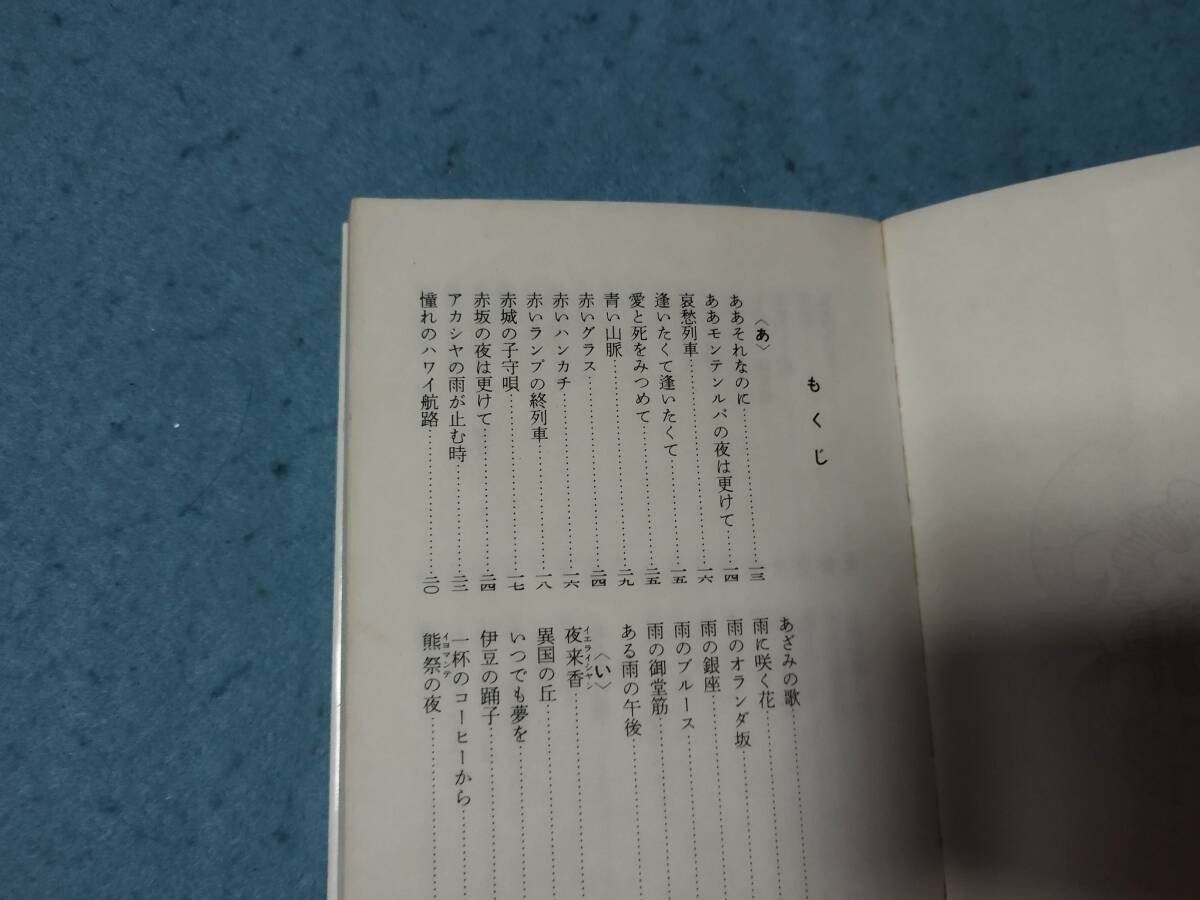 もくじ
〈あ〉
ああそれなのに……一三
ああモンテンルパの夜は更けて……一四
哀愁列車……一六
逢いたくて逢いたくて……一五
愛と死をみつめて……二五
青い山脈……二九
赤いグラス……二四
赤いハンカチ……一六
赤いランプの終列車……一八
赤城の子守唄……一七
赤坂の夜は更けて……二四
アカシヤの雨が止む時……二三
憧れのハワイ航路……二〇
あざみの歌……
雨に咲く花……
雨のオランダ坂……
雨の銀座……
雨のブルース……
雨の御堂筋……
ある雨の午後……
〈い〉
夜来香……
イエライシャン
異国の丘……
いつでも夢を……
伊豆の踊子……
一杯のコーヒーから……
熊祭の夜……
イヨマンテ